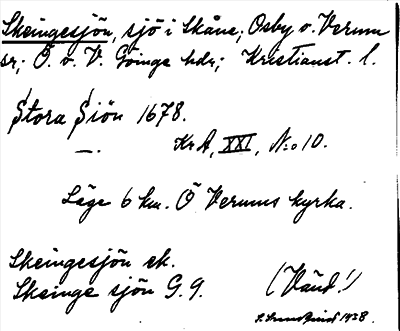 Skeingesjön, sjö i Skåne, Osby o. Verum
sr; Ö. o. V. Göinge hdr; Kristianst. l.
Stora Siön 1678.
—. KrA, XXI, No 10.
Läge 6 km. Ö Verums kyrka.
Skeingesjön ek.
Skeinge sjön G. 9. (Vänd!)
1928.